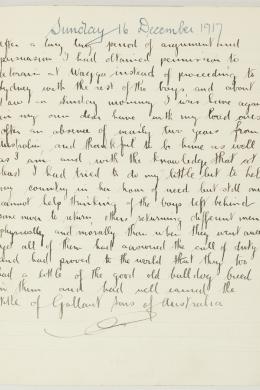 Sunday 16 December 1917
After a long long period of argument and
persuasion I had obtained permission to
detrain at Wagga instead of proceeding to
Sydney with the rest of the boys and about
1 am on Sunday morning I was home again
in my own dear home with my loved ones
after an absence of nearly two years from
Australia and thankful to be home as well
as I am and with the knowledge that at
least I had tried to do my little bit to help
my country in her hour of need but still one
cannot help thinking of the boys left behind
some never to return, others returning different men
physically and morally than when they went away
yet all of them had answered the call of duty
and had proved to the world that they too
had a little of the good old bulldog breed
in them and had well earned the
title of Gallant Sons of Australia